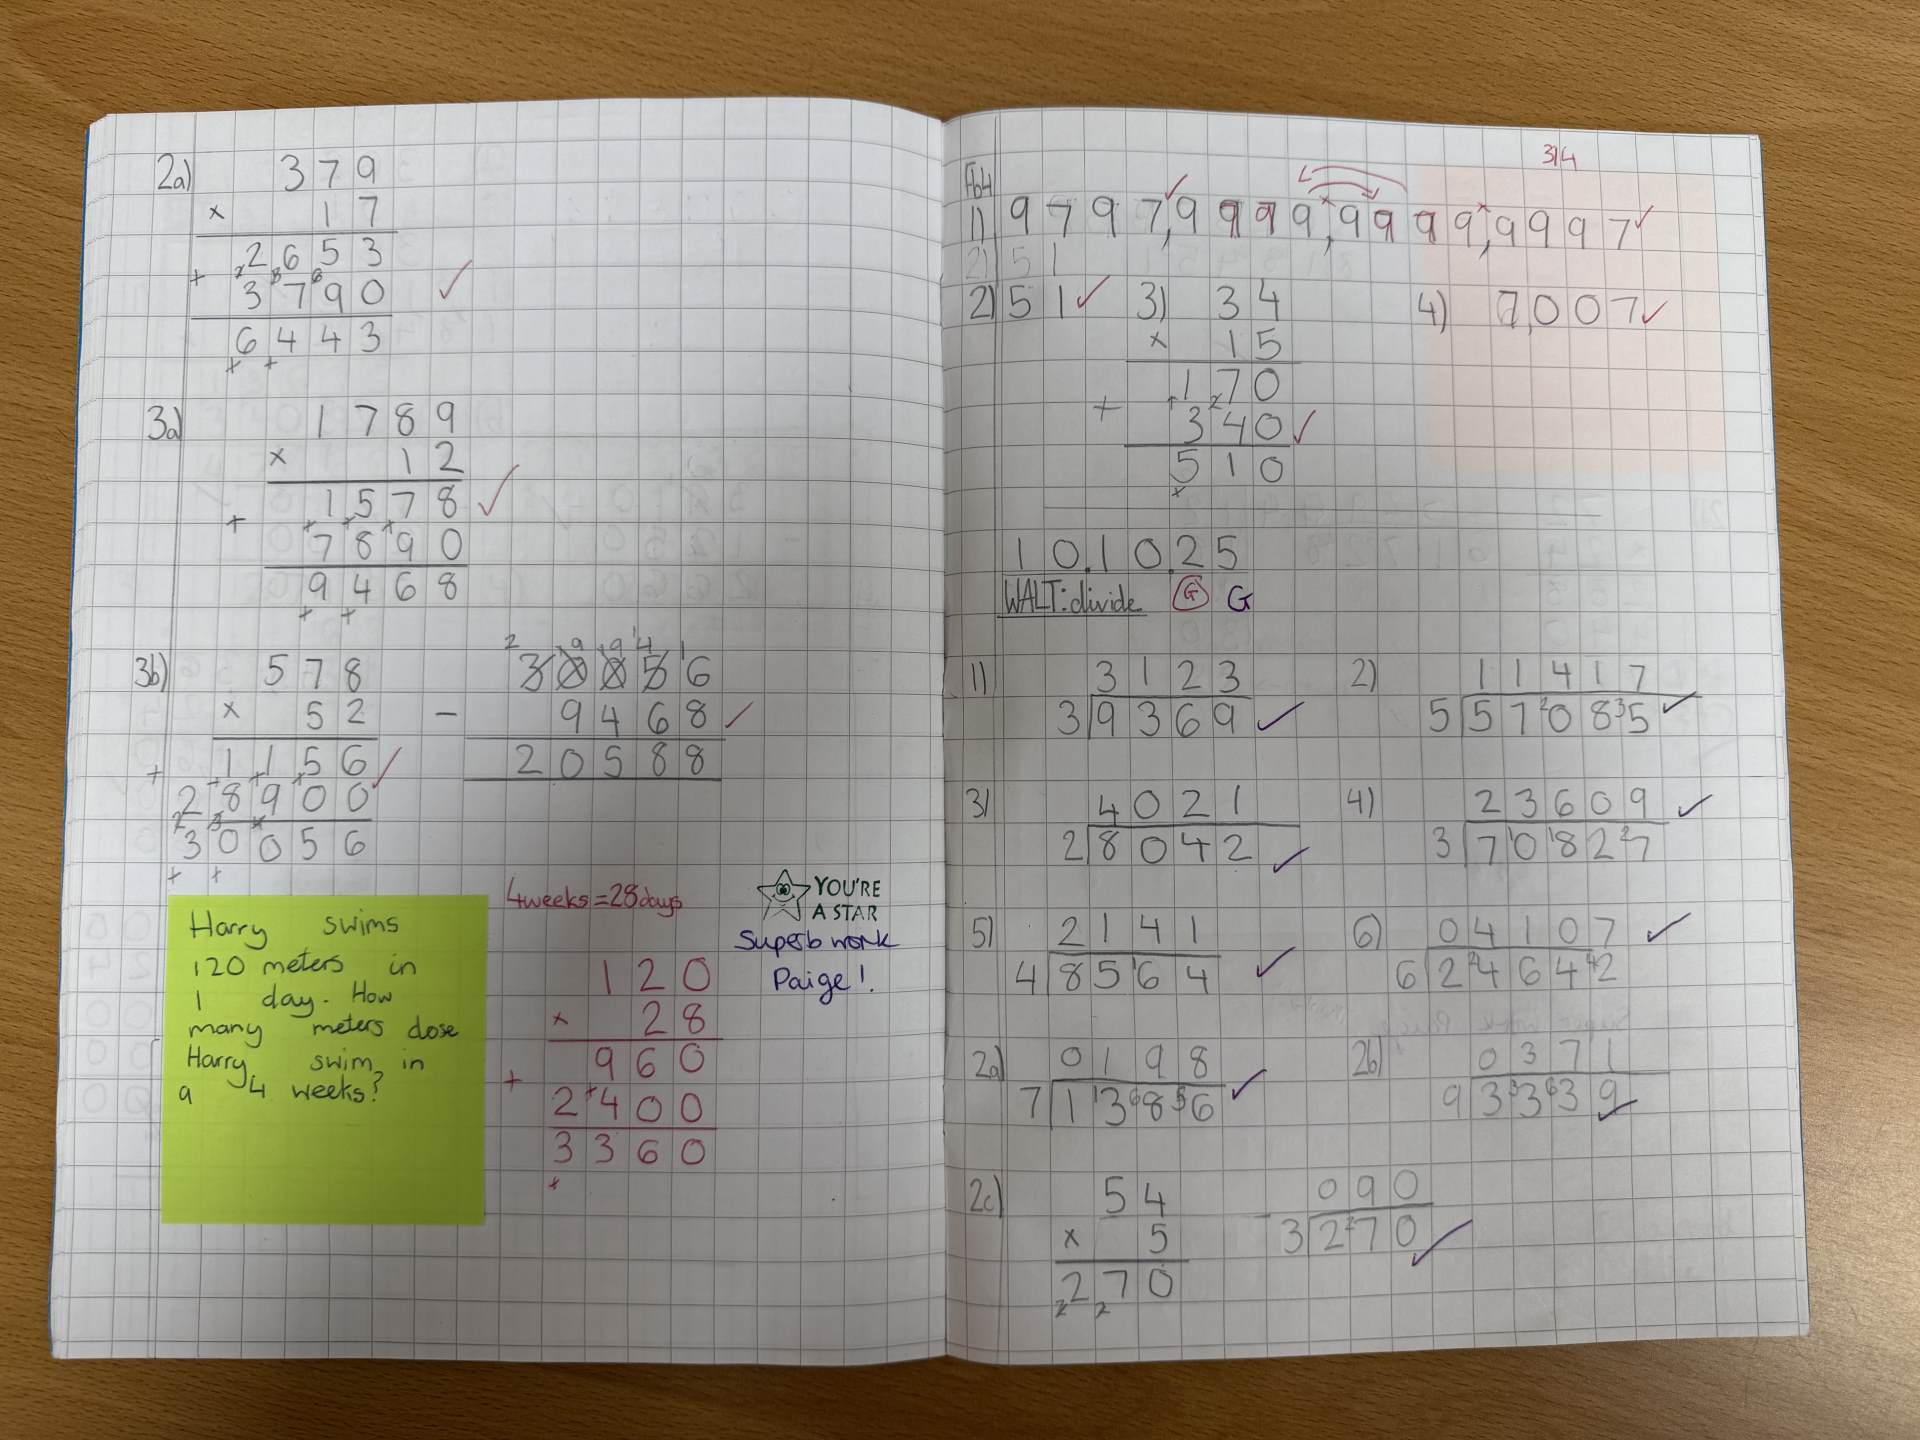 2a) 379
× 17
2653
+ 3790 ✓
6443
3a) 1789
× 12
1578 ✓
+ 7890
9468
3b) 578
× 52
1156 ✓
+ 28900
30056
30056
- 9468 ✓
20588
Harry swims
120 meters in
1 day. How
many meters dose
Harry swim in
a 4 weeks?
4 weeks = 28 days
120
× 28
960
+ 2400
3360
YOU'RE
A STAR
Superb work
Paige!
3/4
Fb4
1) 9797,9999,9999,9997 ✓
2) 51
2) 51 ✓
3) 34
× 15
170
+ 340 ✓
510
4) 7,007 ✓
10.10.25
WALT: divide G G
1) 3123
3 9369 ✓
2) 11417
5 57085 ✓
3) 4021
2 8042 ✓
4) 23609 ✓
3 70827
5) 2141
4 8564 ✓
6) 04107 ✓
6 24642
2a) 0198
7 1386 ✓
2b) 0371
9 3339 ✓
2c) 54
× 5
270
090
3 270 ✓